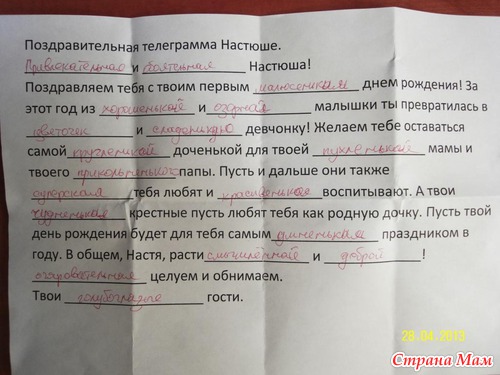 Поздравительная телеграмма Настюше.
Привлекательная и обаятельная Настюша!
Поздравляем тебя с твоим первым малюсеньким днем рождения! За
этот год из хорошенькой и озорной малышки ты превратилась в
цветочек и сладенькую девчонку! Желаем тебе оставаться
самой кругленькой доченькой для твоей пухленькой мамы и
твоего прикольненького папы. Пусть и дальше они также
тебя любят и красивенькая воспитывают. А твои
чудненькая крестные пусть любят тебя как родную дочку. Пусть твой
день рождения будет для тебя самым умненьким праздником в
году. В общем, Настя, расти смышлённой и доброй !
очаровательная целуем и обнимаем.
Твои голубоглазые гости.
28.04.2013
Страна Мам